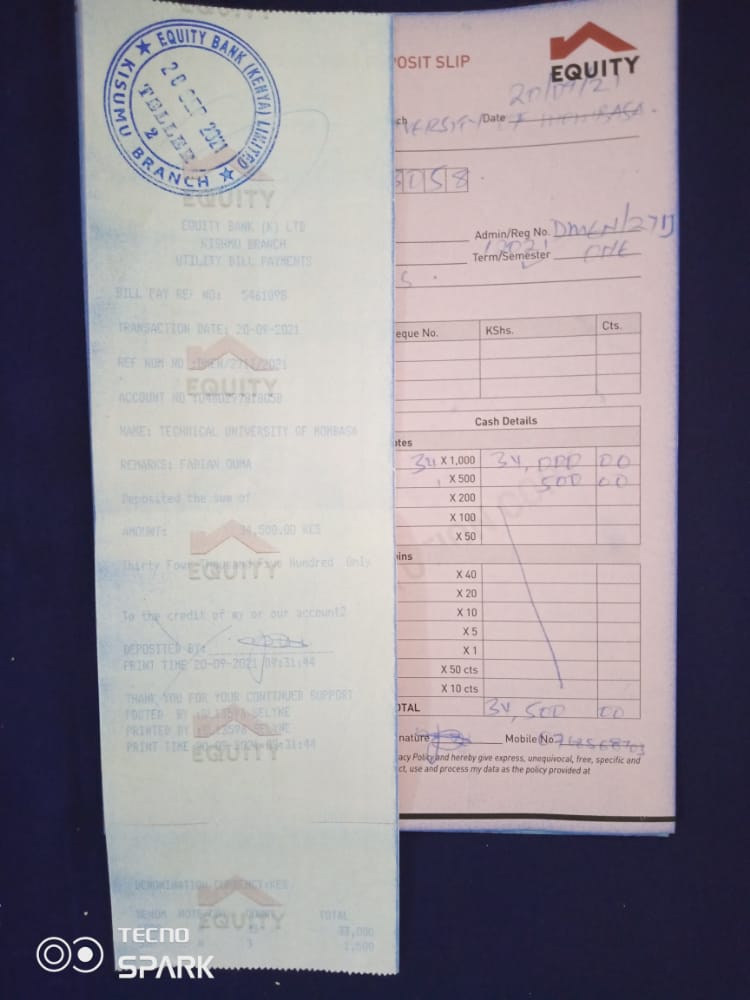 EQUITY BANK (KENYA) LIMITED
20 SEP 2021
TELLER
2
KISUMU BRANCH
EQUITY
EQUITY BANK (K) LTD
KISUMU BRANCH
UTILITY BILL PAYMENTS
BILL PAY REF NO: 546109B
TRANSACTION DATE: 20-09-2021
REF NUM NO :DMEN/271J/2021
EQUITY
ACCOUNT NO
NAME: TECHNICAL UNIVERSITY OF MOMBASA
REMARKS: FABIAN OUMA
Deposited the sum of
AMOUNT: 34,500.00 KES
Thirty Four Thousand Five Hundred Only
EQUITY
To the credit of my or our account2
DEPOSITED BY:
PRINT TIME 20-09-2021 09:31:44
THANK YOU FOR YOUR CONTINUED SUPPORT
POSTED BY SELYNE
PRINTED BY
EQUITY
PRINT TIME 20-09-2021 09:31:44
DENOMINATION CURRENCY:KES
DENOM TOTAL
EQUITY
33,000
1,500
OSIT SLIP
EQUITY
ch /Date 20/09/21
VERSITY OF MOMBASA.
3058.
Admin/Reg No. DMEN/271J
/2021
Term/Semester ONE
S.
eque No. KShs. Cts.
Cash Details
otes
34 X 1,000 34,000 00
1 X 500 500 00
X 200
X 100
X 50
oins
X 40
X 20
X 10
X 5
X 1
X 50 cts
X 10 cts
OTAL 34,500 00
nature Mobile No.
acy Policy and hereby give express, unequivocal, free, specific and
ct, use and process my data as the policy provided at
TECNO
SPARK